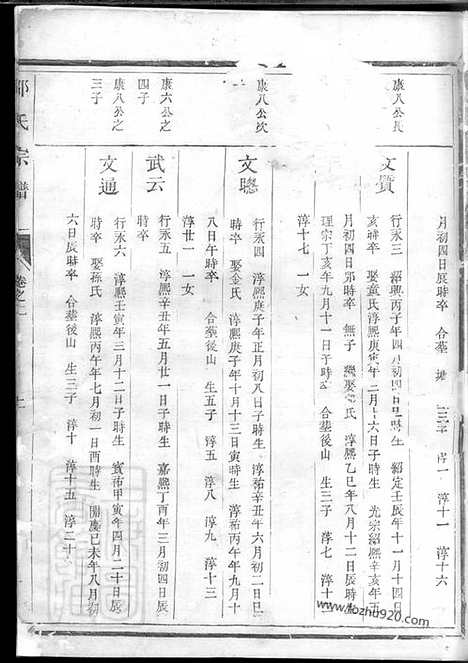 月初四日辰時卒 合墓 生三子 淳一 淳十一 淳十六
康八公長
文質
行永三 紹興丙子年四月初四日 時生 紹定壬辰年十一月十四日
亥時卒 娶童氏淳熙 寅年二月十六日子時生 光宗紹熙辛亥年
月初四日卯時卒 無子 繼娶 氏 淳熙乙巳年八月十二日辰時生
理宗丁亥年九月十一日子時卒 合墓後山 生三子 淳七 淳十二
淳十七 一女
康八公次
文聰
行永四 淳熙庚子年正月初八日子時生 淳祐辛丑年六月初二日巳
時卒 娶金氏 淳熙庚子年十月十三日寅時生 淳祐丙午年九月十
八日午時卒 合墓後山 生五子 淳五 淳八 淳九 淳十三
淳廿一 一女
康六公之
四子
武云
行永五 淳熙辛丑年五月廿一日子時生 嘉熙丁酉年三月初四日辰
時卒
康八公之
三子
文通
行永六 淳熙壬寅年三月十二日子時生 寶祐甲寅年四月二十日辰
時卒 娶孫氏 淳熙丙午年七月初一日酉時生 開慶己未年八月初
六日辰時卒 合墓後山 生三子 淳十 淳十五 淳二十
氏宗譜
卷之二
www.fozhu920.com